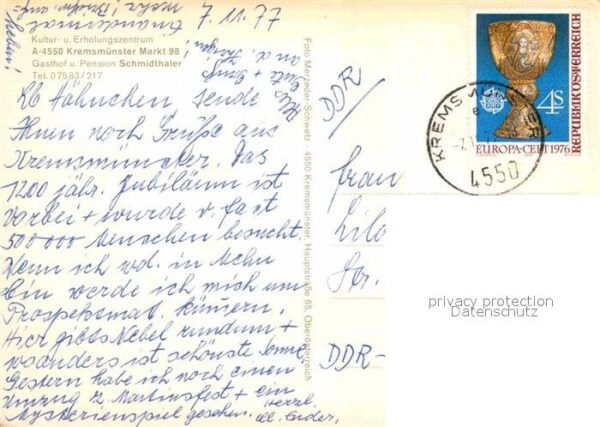 7.11.77
Kultur- u. Erholungszentrum
A-4550 Kremsmünster Markt 98
Gasthof u. Pension Schmidthaler
Tel. 07583/217
Lb Hähnchen sende
Ihnen noch Grüße aus
Kremsmünster. Das
1200 jähr. Jubiläum ist
vorbei + wurde v. fast
500 000 Menschen besucht.
Wenn ich wd. in
bin werde ich mich um
Prospektmat. kümern.
Hier gibts Nebel rundum +
woanders ist schönste Sonne
Gestern habe ich noch einen
Umzug z. Martinsfest + ein
Mysterienspiel gesehen. Herzl.
Foto Mergander-Schwetz · 4550 Kremsmünster, Hauptstraße 65, Oberösterreich
DDR
Frau
Lilo
Str.
DDR-
REPUBLIK ÖSTERREICH
4S
EUROPA-CEPT 1976
KREMSMÜNSTER
4550
privacy protection
Datenschutz